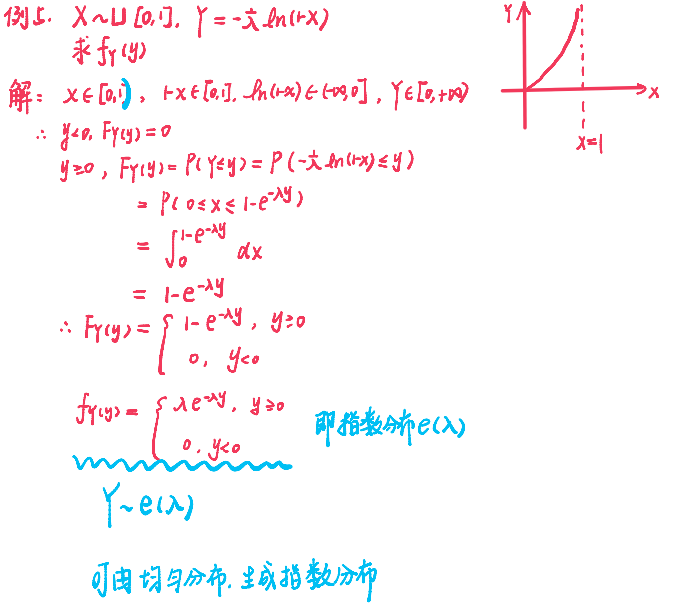 例5. X~U[0,1], Y=-1/λ ln(1-X)
求 fY(y)
解: X∈[0,1), 1-X∈[0,1], ln(1-X)∈(-∞,0], Y∈[0,+∞)
∴ y<0, FY(y)=0
y≥0, FY(y)=P(Y≤y)=P(-1/λ ln(1-X)≤y)
=P(0≤x≤1-e^{-λy})
=∫_0^{1-e^{-λy}} dx
=1-e^{-λy}
∴ FY(y)={ 1-e^{-λy}, y≥0
0, y<0
fY(y)={ λe^{-λy}, y≥0
0, y<0
即指数分布e(λ)
Y~e(λ)
可由均匀分布,生成指数分布
Y
x
x=1